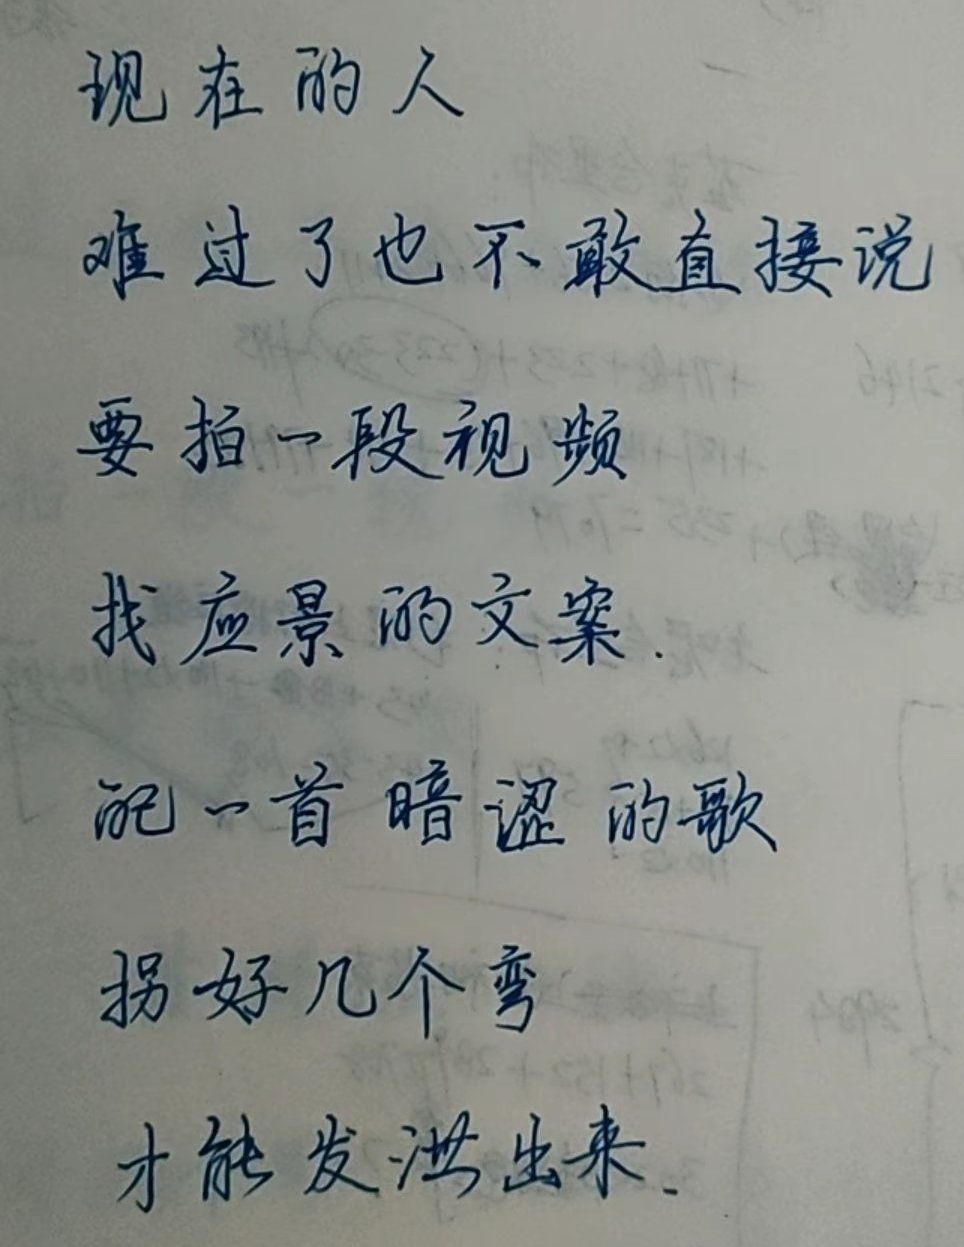 现在的人
难过了也不敢直接说
要拍一段视频
找应景的文案.
配一首暗涩的歌
拐好几个弯
才能发泄出来.